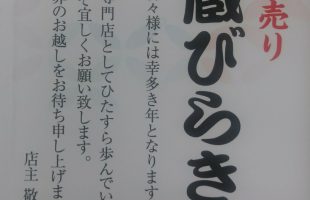 売り
蔵びらき
々様には幸多き年となります
専門店としてひたすら歩んでい
で宜しくお願い致します。
のお越しをお待ち申し上げま
店主 敬